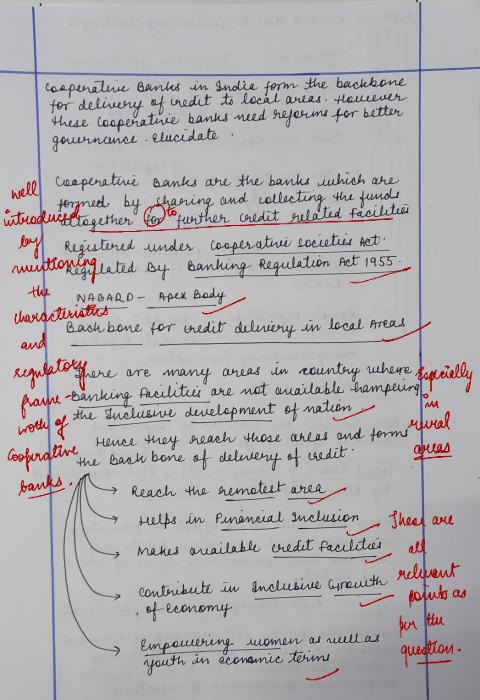 Cooperative Banks in India form the backbone
for delivery of credit to local areas. However
these cooperative banks need reforms for better
governance. Elucidate.
Cooperative Banks are the banks which are
formed by sharing and collecting the funds
altogether for to further credit related facilities
Registered under cooperative societies Act.
Regulated By Banking Regulation Act 1955.
NABARD - Apex Body
Backbone for credit delivery in local Areas
well
introduced
by
mentioning
the
characteristics
and
regulatory
frame-
work of
Cooperative
banks.
There are many areas in country where
Banking Facilities are not available hampering
the Inclusive development of nation.
Especially
in
rural
areas
Hence they reach those areas and forms
the Backbone of delivery of credit.
Reach the remotest area
Helps in Financial Inclusion
Makes available credit facilities
Contribute in Inclusive Growth
of Economy
Empowering women as well as
youth in economic terms
These are
all
relevant
points as
per the
question.